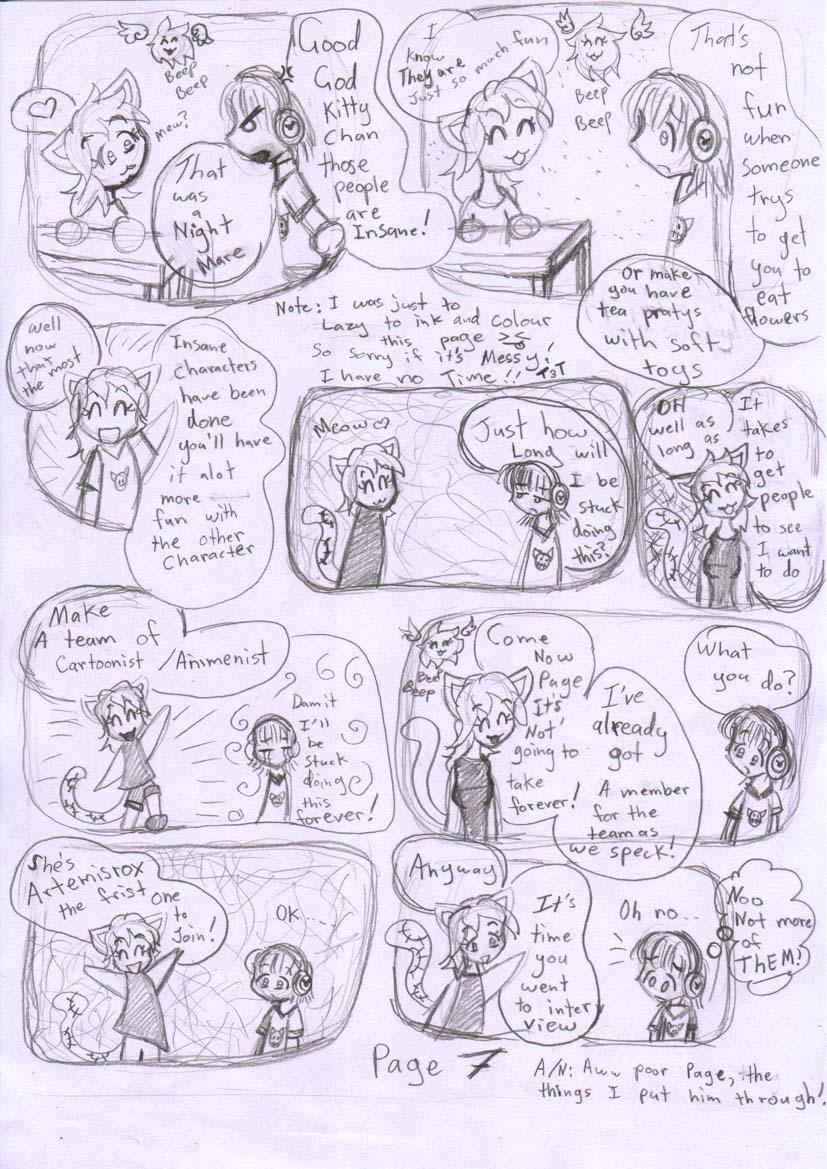 Good
God
Kitty
Chan
those
people
are
Insane!
Beep
Beep
mew?
That
was
a
Night
Mare
I
know
They are
Just so much fun
Beep
Beep
That's
not
fun
when
someone
trys
to get
you to
eat
flowers
Or make
you have
tea pratys
with soft
toys
Note: I was just to
Lazy to ink and colour
this page
So sorry if it's Messy!
I have no Time!! T3T
well
now
that
the most
Insane
characters
have been
done
you'll have
it alot
more
fun with
the other
character
Meow
Just how
Lond will
I be
stuck
doing
this?
OH
well as
long as
It
takes
to
get
people
to see
I want
to do
Make
A team of
Cartoonist /Animenist
Damit
I'll
be
stuck
doing
this
forever!
Beep
Beep
Come
Now
Page
It's
'Not'
going to
take
forever!
I've
already
got
A member
for the
team as
we speck!
What
you do?
She's
Artemisrox
the frist one
to
Join!
OK.....
Anyway
It's
time
you
went
to inter
view
Oh no...
Noo
Not more
of
THEM!
Page 7
A/N: Aww poor Page, the
things I put him through!